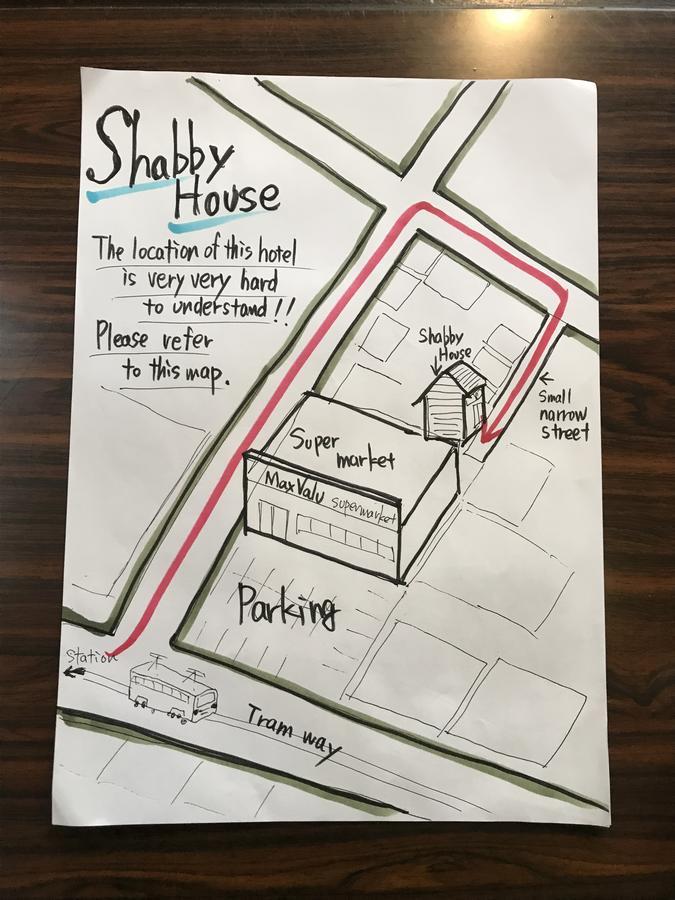 Shabby
House
The location of this hotel
is very very hard
to understand!!
Please refer
to this map.
Shabby
House
Small
narrow
street
Super
market
MaxValu supermarket
Parking
Station
Tram way